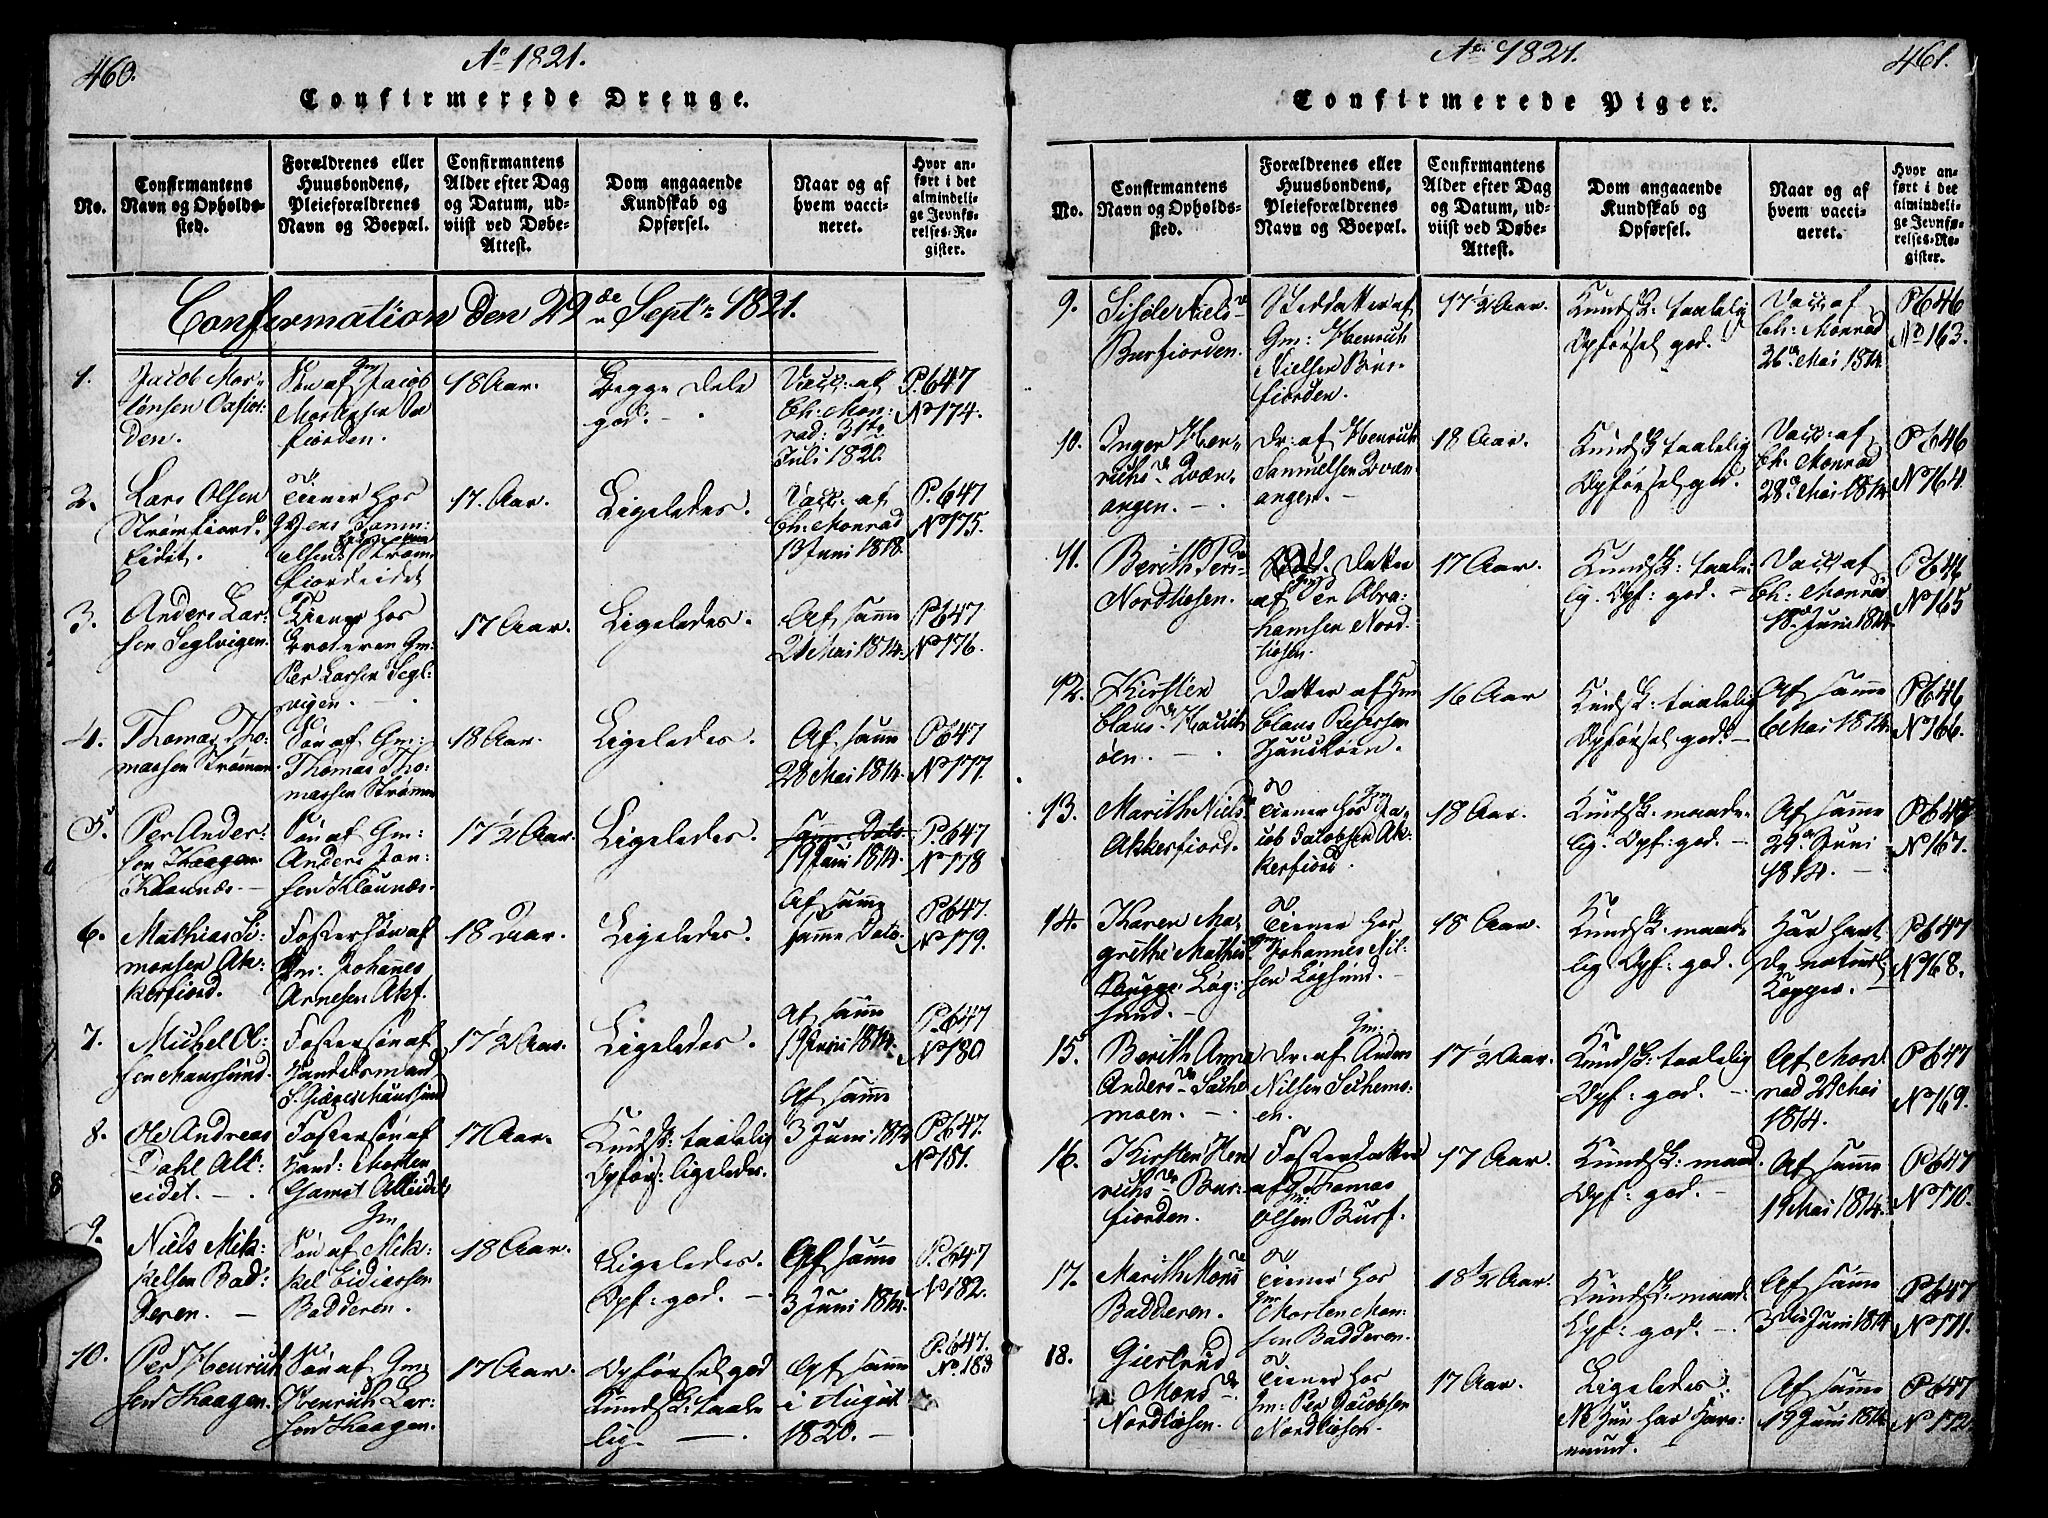 460.
Ao 1821.
Confirmerede Drenge.
No.
Confirmantens
Navn og Opholds-
sted.
Forældrenes eller
Huusbondens,
Pleieforældrenes
Navn og Boepæl.
Confirmantens
Alder efter Dag
og Datum, ud-
viist ved Døbe-
Attest.
Dom angaaende
Kundskab og
Opførsel.
Naar og af
hvem vacci-
neret.
Hvor an-
ført i det
almindeli-
ge Jevnfø-
relses-Re-
gister.
Confirmation den 29de Septr: 1821.
1.
Jacob Mor-
tensen Oxfior-
den.
Søn af Gm Jacob
Mortensen
fiorden.
18 Aar.
Begge Dele
god. -
Vacc: af
Ch: Mon-
rad: 31te
Juli 1820.
P. 647
No 174.
2.
Lars Olsen
Strømfiord
Eidit.
Tiener hos
Jens Sam-
elsen Strøm-
fiordeidet
17 Aar.
Ligeledes.
Vacc: af
Ch: Monrad
13 Juni 1818.
P. 647
No 175.
3.
Anders Lar-
sen Seglvigen.
Tiener hos
Broderen Gm:
Per Larsen Segl-
vigen. -
17 Aar.
Ligeledes.
Af samme
21 Mai 1814.
P. 647
No 176.
4.
Thomas Tho-
massen Strømmen.
Søn af Gm:
Thomas Tho-
massen Strømmen
18 Aar.
Ligeledes.
Af samme
28 Mai 1814.
P. 647
No 177.
5.
Per Ander-
sen
Klounæs. -
Søn af Gm:
Anders Jon-
sen Klounæs.
17 1/2 Aar.
Ligeledes.
19 Juni 1814.
P. 647
No 178
6.
Mathias Si-
monsen Ak-
kerfiord.
Fostersøn af
Gm: Johannes
Arnesen Akf.
18 Aar.
Ligeledes.
Af samme
samme Dato.
P. 647.
No 179.
7.
Michel Ol-
sen Maursund.
Fostersøn af
Handelsmand
Maursund
17 1/2 Aar.
Ligeledes.
Af samme
19 Juni 1814.
P. 647
No 180
8.
Ole Andreas
Dahl Alt-
eidet. -
Fostersøn af
Hand: Morten
Gamst Alteidet
17 Aar.
Kundsk: taalelig
Opførs: ligeledes.
Af samme
3 Juni 1814
P. 647.
No 181.
9.
Niels Mik-
kelsen Bad-
deren. -
Søn af Gm Mik-
kel Eidiassen
Badderen.
18 Aar.
Ligeledes.
Opf: god. -
Af samme
3 Juni 1814.
P. 647
No 182.
10.
Per Henrich
sen Skaagen.
Søn af Gm:
Henrich Lar-
sen Skaagen.
17 Aar.
Opførsel god
Kundsk: taale
lig. -
Af samme
i August
1820. -
P. 647.
No 183
461.
Ao 1821.
Confirmerede Piger.
No.
Confirmantens
Navn og Opholds-
sted.
Forældrenes eller
Huusbondens,
Pleieforældrenes
Navn og Boepæl.
Confirmantens
Alder efter Dag
og Datum, ud-
viist ved Døbe-
Attest.
Dom angaaende
Kundskab og
Opførsel.
Naar og af
hvem vacci-
neret.
Hvor an-
ført i det
almindeli-
ge Jevnfø-
relses-Re-
gister.
9.
Niels
Burfiorden.
Steddatter af
Gm: Henrich
Nielsen Bur-
fiorden.
17 1/2 Aar
Kundsk: taalelig
Opførsel god.
Vacc: af
Ch: Monrad
26de Mai 1814.
P 646
No 163.
10.
Inger Hen-
richs Dr Qvæn-
angen. -
Dr: af Henrich
Samuelsen Qvæn-
angen. -
18 Aar.
Kundsk: taalelig
Opførsel god.
Vacc: af
Ch: Monrad
28de Mai 1814
P 646
No 164.
11.
Berith Pers
Nordkiosen.
Datter
af Gm Per Abra-
hamsen Nord-
kiosen.
17 Aar.
Kundsk: taale-
lig. Opf: god. -
Vacc: af
Ch: Monrad
18de Juni 1814
P 646
No 165
12.
Kirsten
Claus Dr Hauk
øen. -
Datter af Gm
Claus
Haukøen.
16 Aar
Kundsk: taalelig
Opførsel god. -
Af samme
6 Mai 1814.
P 646
No 166.
13.
Marith Niels
Akkerfiord.
Tiener hos Gm Ja-
cob Jacobsen Ak-
kerfiord
18 Aar.
Kundsk: maade-
lig. Opf: god. -
Af samme
29de Juni
1814. -
P 64
No 167.
14.
Karen Ma-
grethe Mathis
Løg-
sund. -
Tiener hos
Gm Johannes Nil-
sen Løgsund. -
18 Aar.
Kundsk: maade
lig. Opf: god.
Har havt
de naturl:
Kopper. -
P 647
No 168.
15.
Berith Anne
Anders Dr
moen. -
Dr: af Gm: Anders
Nilsen
en.
17 1/2 Aar.
Kundsk: taalelig
Opf: god. -
Af Mon-
rad 29 Mai
1814.
P 647
No 169.
16.
Kirsten Hen
richs Dr Bur-
fiorden.
Fosterdatter
af Gm: Thomas
Olsen Burf.
17 Aar.
Kundsk: maad
Opf: god. -
Af samme
19 Mai 1814.
P 647
No 170.
17.
Marith Mons
Badderen.
Tiener hos
Gm Morten Mon-
sen Badderen.
18 1/2 Aar.
Kundsk: maad:
Opf: god. -
Af samme
3die Juni 1814
P 647
No 171.
18.
Giertrud
Mons Dr
Nordkiosen.
Tiener hos
Gm: Per Jacobsen
Nordkiosen.
17 Aar.
Ligeledes
Hun har
mund. -
Af samme
19 Juni 1814.
P 647
No 172.